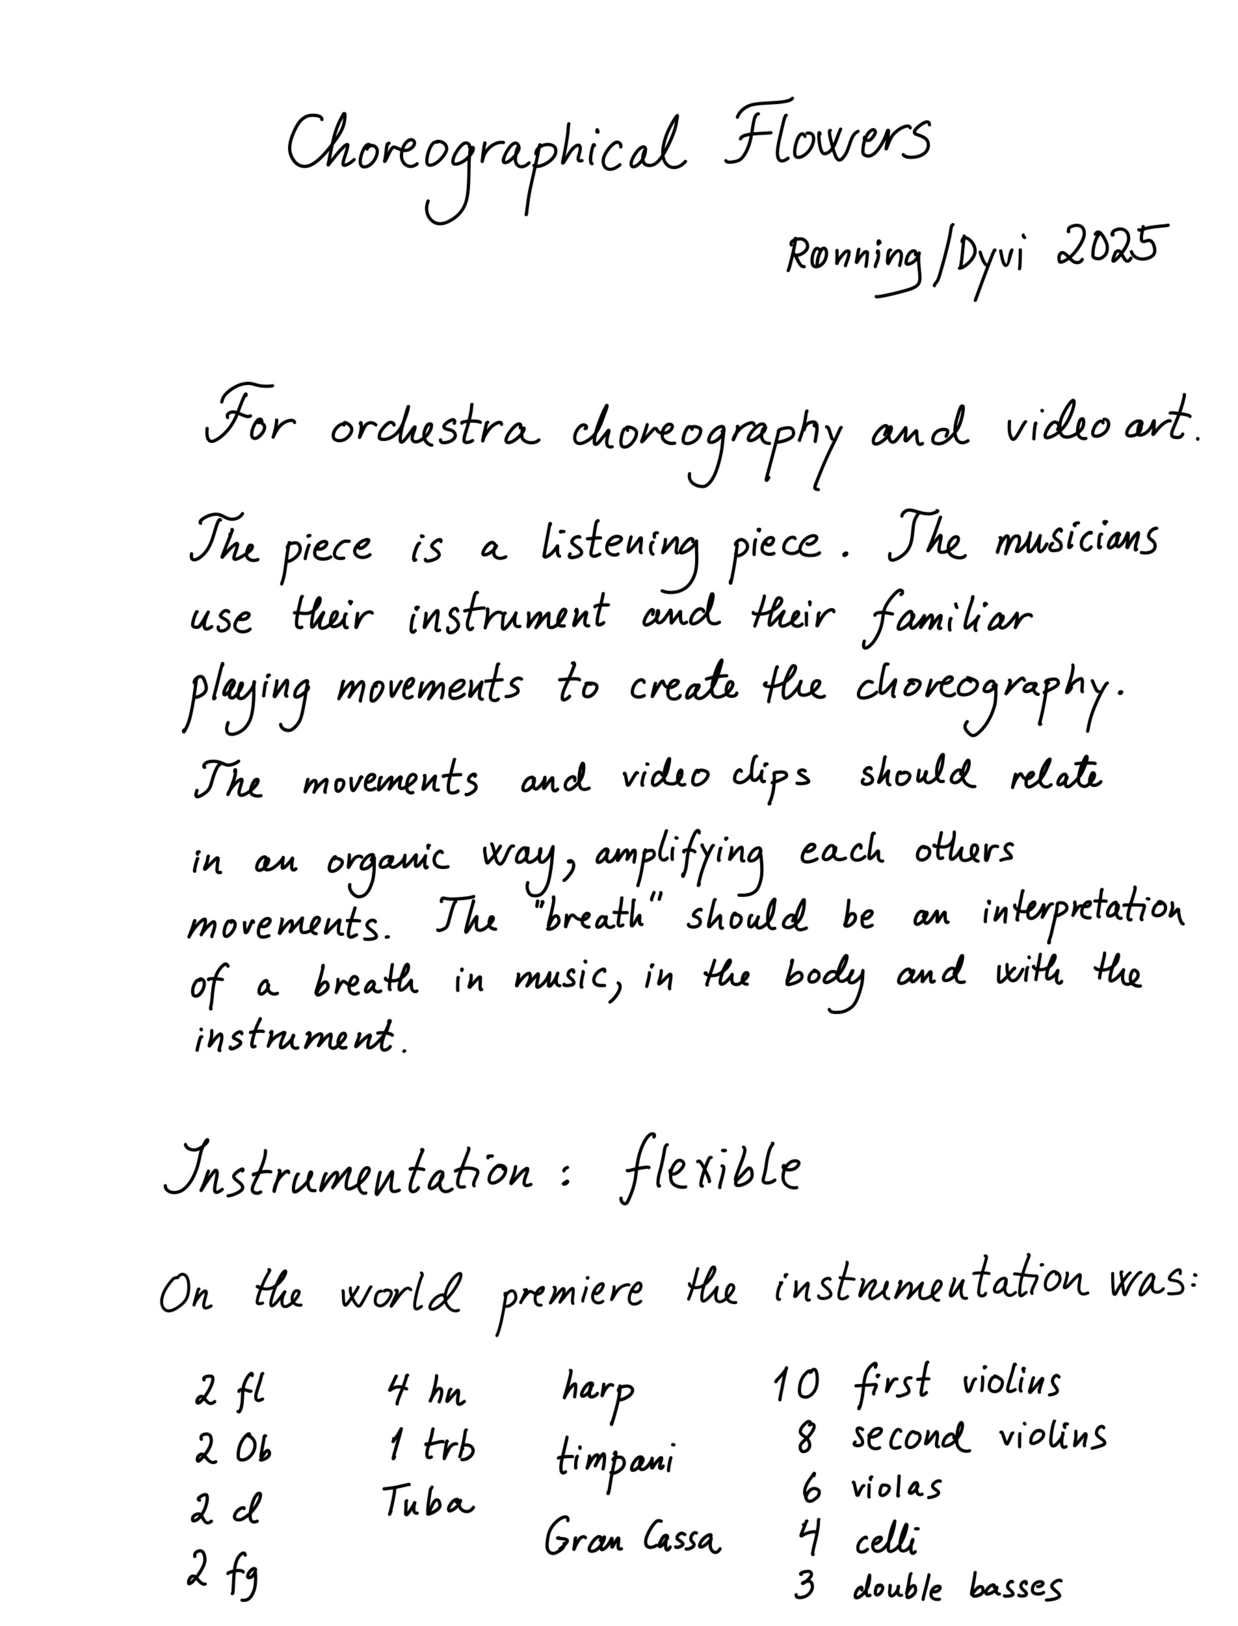 Choreographical Flowers
Rønning/Dyvi 2025
For orchestra choreography and video art.
The piece is a listening piece. The musicians
use their instrument and their familiar
playing movements to create the choreography.
The movements and video clips should relate
in an organic way, amplifying each others
movements. The "breath" should be an interpretation
of a breath in music, in the body and with the
instrument.
Instrumentation: flexible
On the world premiere the instrumentation was:
2 fl
2 Ob
2 cl
2 fg
4 hn
1 trb
Tuba
harp
timpani
Gran Cassa
10 first violins
8 second violins
6 violas
4 celli
3 double basses